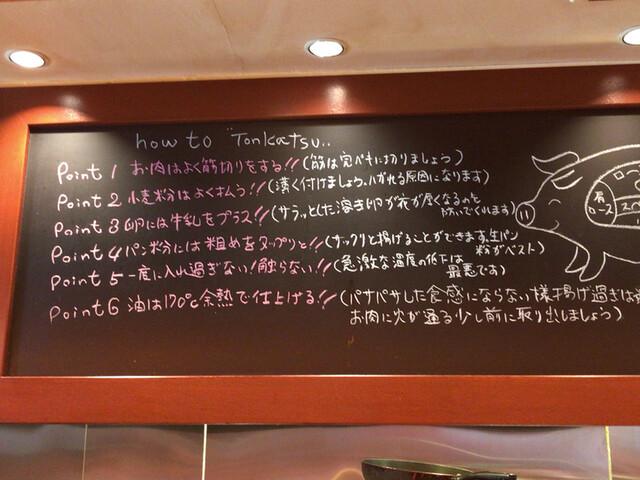 how to "Tonkatsu..
Point 1 お肉はよく筋切りをする!!(筋は完ペキに切りましょう)
Point 2 小麦粉はよく払う!!(薄く付けましょう。ハガれる原因になります)
Point 3 卵には牛乳をプラス!!(サラッとした溶き卵が衣が厚くなるのを
防いでくれます)
Point 4 パン粉分には粗めをタップリと!!(サックリと揚げることができます。生パン
粉がベスト)
Point 5 一度に入れ過ぎない!触らない!!(急激な温度の低下は
最悪です)
Point 6 油は170℃余熱で仕上げる!!(パサパサした食感にならない様揚げ過ぎは
お肉に火が通る少し前に取り出しましょう)
肩
ロース